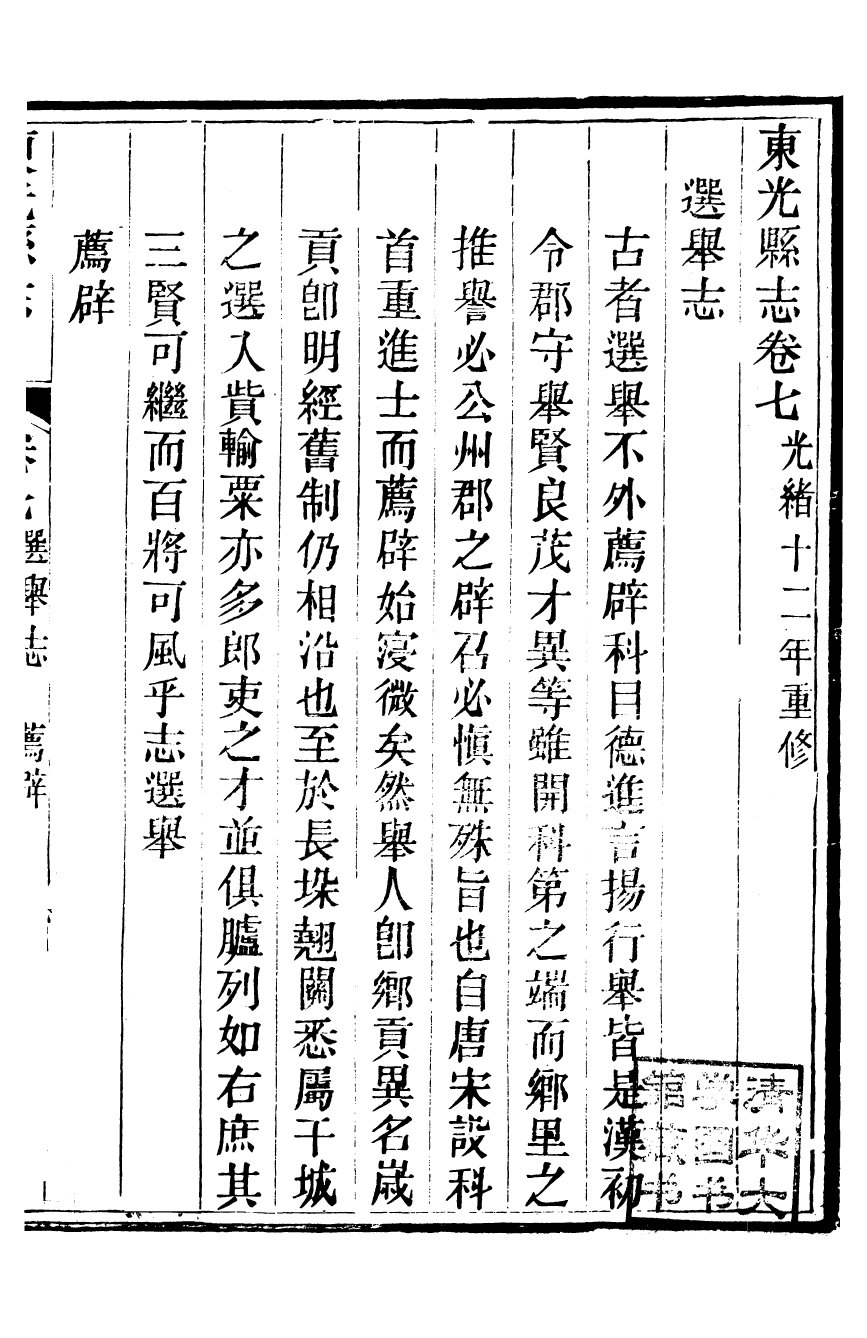 東光縣志卷七 光緒十二年重修
選舉志
古者選舉不外薦辟科目德進言揚行舉皆是漢初
令郡守舉賢良茂才異等雖開科第之端而鄉里之
推譽必公州郡之辟召必慎無殊旨也自唐宋設科
首重進士而薦辟始寖微矣然舉人卽鄉貢異名歲
貢卽明經舊制仍相沿也至於長垛翹關悉屬干城
之選入貲輸粟亦多郎吏之才並俱臚列如右庶其
三賢可繼而百將可風乎志選舉
薦辟
東光縣志 卷七 選舉志 薦辟
清华大
学图书
馆藏书